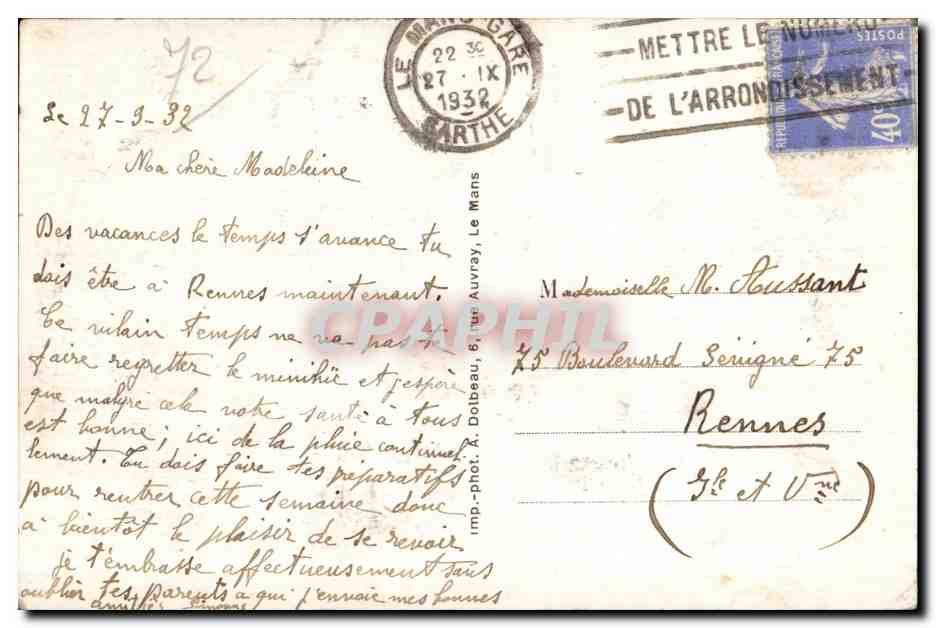 72
LE MANS-GARE
22 30
27 · IX
1932
SARTHE
METTRE LE NUMERO
DE L'ARRONDISSEMENT
POSTES
REPUBLIQUE FRANÇAISE
40c
Le 27-9-32
Ma chère Madeleine
Des vacances le temps s'avance tu
dois être à Rennes maintenant.
Ce vilain temps ne va pas te
faire regretter le minihic et j'espère
que malgré cela votre santé à tous
est bonne; ici de la pluie continuel
lement. Tu dois faire tes préparatifs
pour rentrer cette semaine donc
à bientôt le plaisir de se revoir
je t'embrasse affectueusement sans
oublier tes parents a qui j'envoie mes bonnes
amitiés Simone
imp.-phot. A. Dolbeau, 6, rue Auvray, Le Mans
Mademoiselle M. Aussant
75 Boulevard Sévigné 75
Rennes
(Ile et Vne)
CPAPHIL